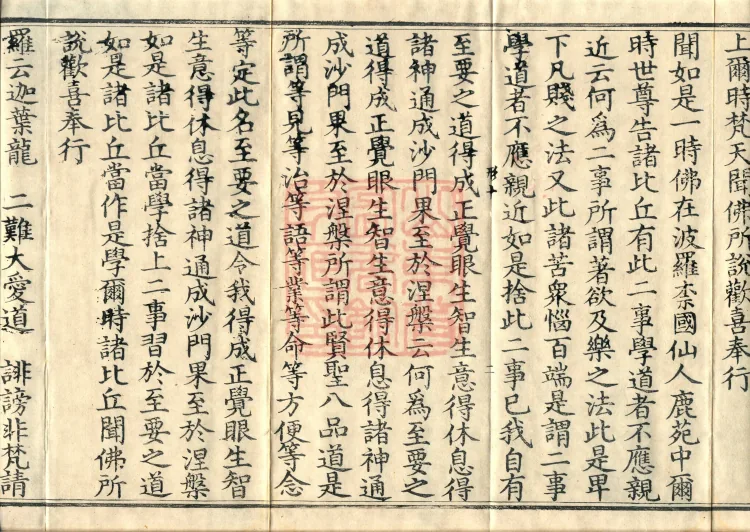 上爾時梵天聞佛所說歡喜奉行
聞如是一時佛在波羅柰國仙人鹿苑中爾
時世尊告諸比丘有此二事學道者不應親
近云何為二事所謂著欲及樂之法此是卑
下凡賤之法又此諸苦衆惱百端是謂二事
學道者不應親近如是捨此二事已我自有
至要之道得成正覺眼生智生意得休息得
諸神通成沙門果至於涅槃云何為至要之
道得成正覺眼生智生意得休息得諸神通
成沙門果至於涅槃所謂此賢聖八品道是
所謂等見等治等語等業等命等方便等念
等定此名至要之道令我得成正覺眼生智
生意得休息得諸神通成沙門果至於涅槃
如是諸比丘當學捨上二事習於至要之道
如是諸比丘當作是學爾時諸比丘聞佛所
說歡喜奉行
羅云迦葉龍 二難大愛道 誹謗非梵請